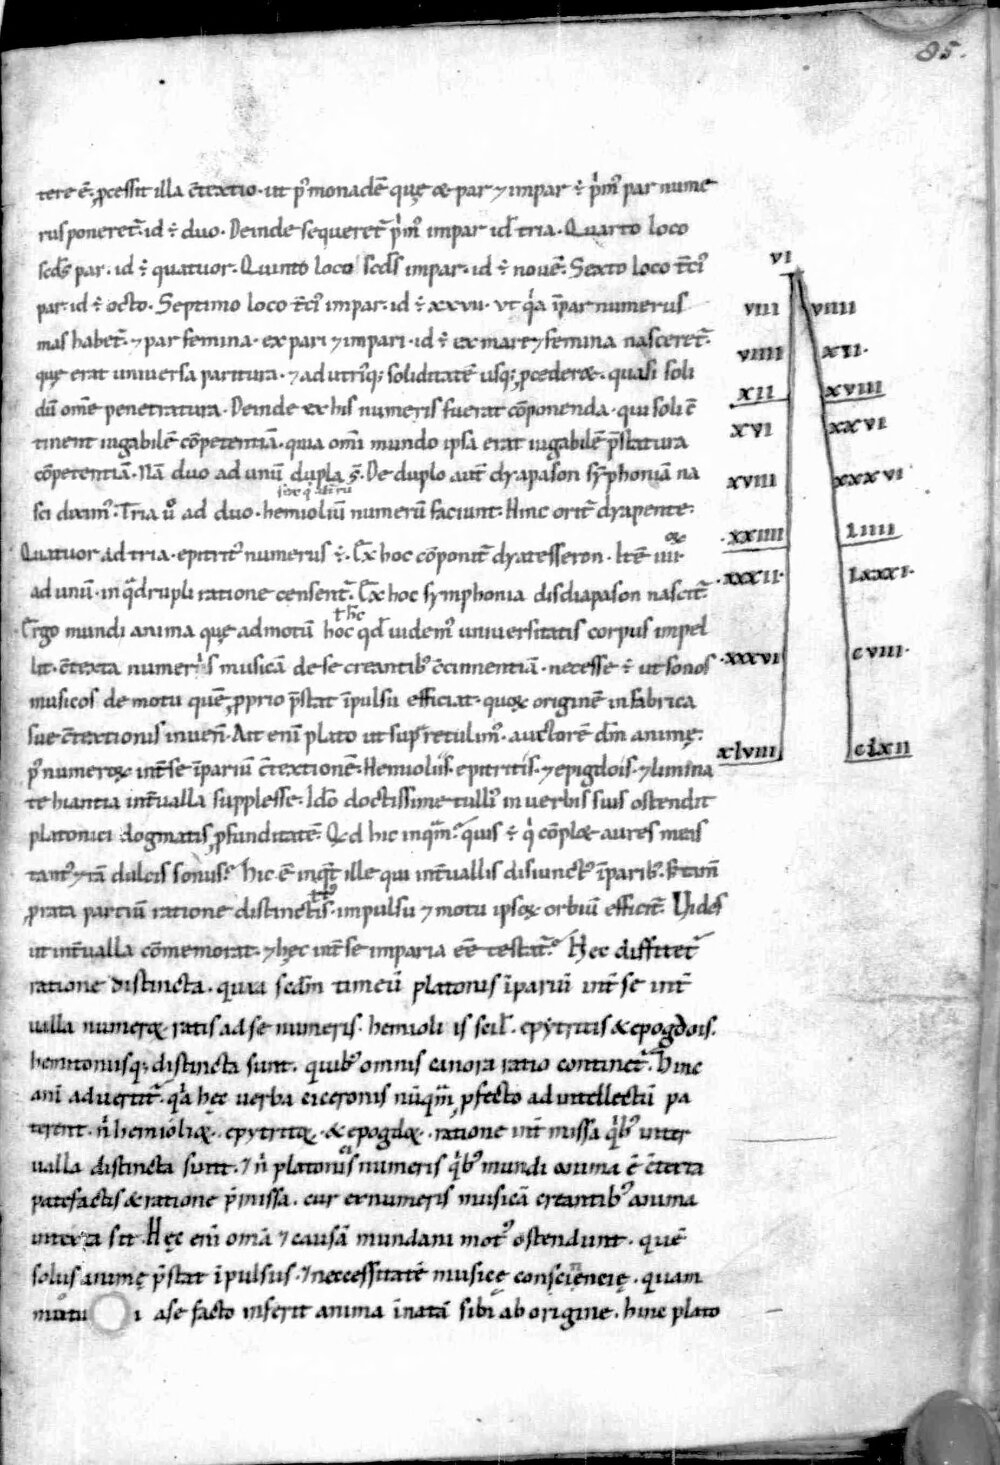 85.
tere ē. ꝓcessit illa c̄textio. ut pꝰ monadē quę & par ⁊ impar ē p̄mꝰ par nume
rus poneret̄. id ē duo. Deinde sequeret̄ p̄mꝰ impar id ē tria. Quarto loco
scd̄s par. id ē quatuor. Quinto loco scd̄s impar. id ē nouē. Sexto loco t̄ciꝰ
par. id ē octo. Septimo loco t̄ciꝰ impar. id ē xxvii. ut q̇a īpar numerus
mas habet̄. ⁊ par femina. ex pari ⁊ impari. id ē ex mare ⁊ femina nasceret̄.
quę erat uniuersa paritura. ⁊ ad utriꝰq; soliditatē usq; ꝓcederet. quasi soli
dū om̄e penetratura. Deinde ex his numeris fuerat cōponenda. qui soli c̄
tinent iugabilē cōpetentiā. quia om̄i mundo ipsa erat iugabilē p̄statura
cōpetentiā. Nā duo ad unū dupla s̄. De duplo aut̄ dyapason symphoniā na
sci diximꝰ. Tria ů ad duo. hemioliū numerū faciunt. Hinc orit̄ dyapente.
Quatuor ad tria. epitritꝰ numerus ē. Ex hoc cōponit̄ dyatesseron. Itē iiii.
ad unū. in q̇drupli ratione censent̄. Ex hoc symphonia disdiapason nascit̄.
Ergo mundi anima quę ad motū hoc qd̄ uidemꝰ uniuersitatis corpus impel
lit. c̄texta numeris musicā de se creantibꝰ c̄cinnentiā. necesse ē ut sonos
musicos de motu quē ꝓprio p̄stat īpulsu efficiat. quoꝝ originē in fabrica
sue c̄textionis inuen̄. Ait eni plato ut sup̄ retulimꝰ. auctorē dm̄ animę.
pꝰ numeroꝝ int̄ se īpariū c̄textionē. Hemioliis. epitritis. ⁊ epigdois. ⁊ limma
te hiantia int̄ualla supplesse. Ido doctissime tulliꝰ in uerbis suis ostendit
platonici dogmatis ꝓfunditatē. Qd hic inquā. quis ē q̇ cōplet aures meas
tantꝰ ⁊ tā dulcis sonus. Hic ē inq̇t ille qui int̄uallis disiunctꝰ īparibꝰ.
ꝓrata partiū ratione distinctis. impulsu ⁊ motu ipsoꝝ orbiū efficit̄. Vides
ut int̄ualla cōmemorat. ⁊ hęc int̄ se imparia eē testat̄. Hec diffitet̄
ratione distincta. quia scdm̄ timeū platonis īpariū int̄ se int̄
ualla numeroꝝ ratis ad se numeris. hemioli is scil. epytritis & epogdois.
hemitoniisq; distincta sunt. quibꝰ omnis canora ratio continet̄. Hinc
ani aduertit̄. q̇a hęc uerba ciceronis nūqm̄ ꝓfecto ad intellectū pa
terent. n̄ hemioliꝝ. epytritꝝ. & epogdoꝝ. ratione int̄ missa q̇bꝰ inter
ualla distincta sunt. ⁊ n̄ platonis numeris q̇bꝰ mundi anima ē c̄texta
patefactis & ratione p̄missa. cur ex numeris musicā creantibꝰ anima
intexta sit. Hęc eni omā ⁊ causā mundani motꝰ ostendunt. quē
solus animę p̄stat īpulsus. ⁊ necessitatē musicę. quam
motu i a se facto inserit anima īnatā sibi ab origine. hinc plato
vi
viii viiii
viiii xii.
xii xviii
xvi xxvi
xviii xxxvi
.xxiiii liiii
.xxxii. lxxxi.
.xxxvi cviii.
xlviii clxii